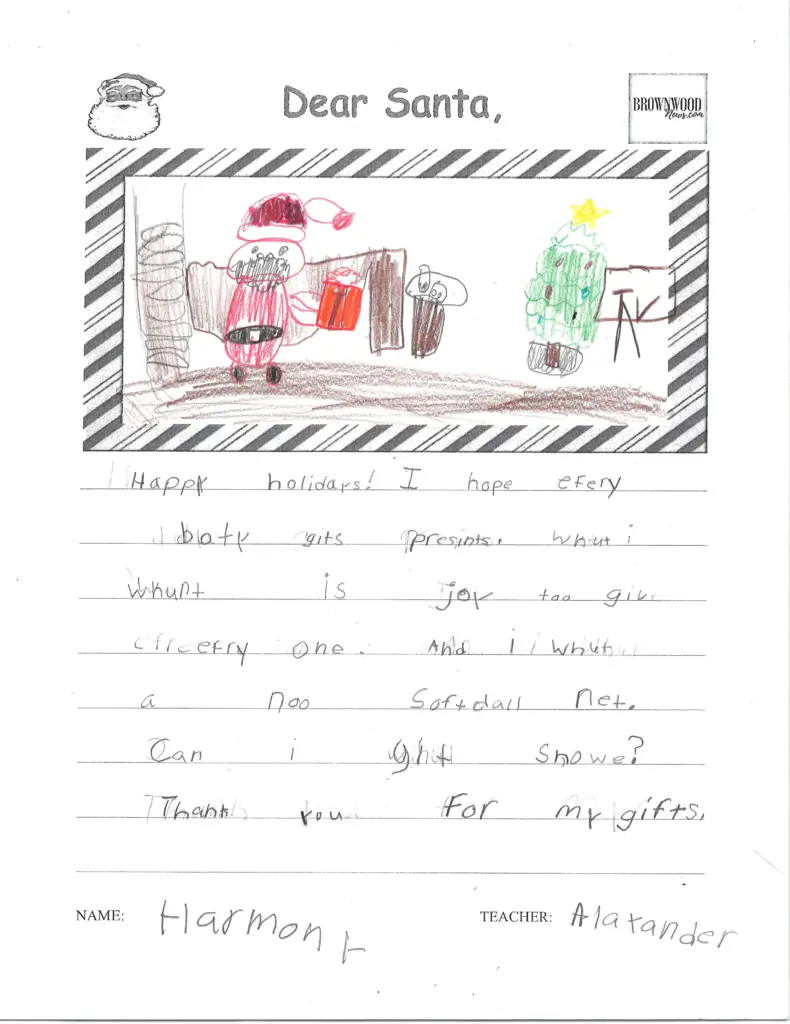 Dear Santa,
BROWNWOOD
News.com
TV
Happy holidays! I hope efery
boty gits presints. Whut i
whunt is joy too give
efery one. And i whunt
a noo Softdall net.
Can i ght Snowe?
Thank you for my gifts.
NAME: Harmony TEACHER: Alaxander